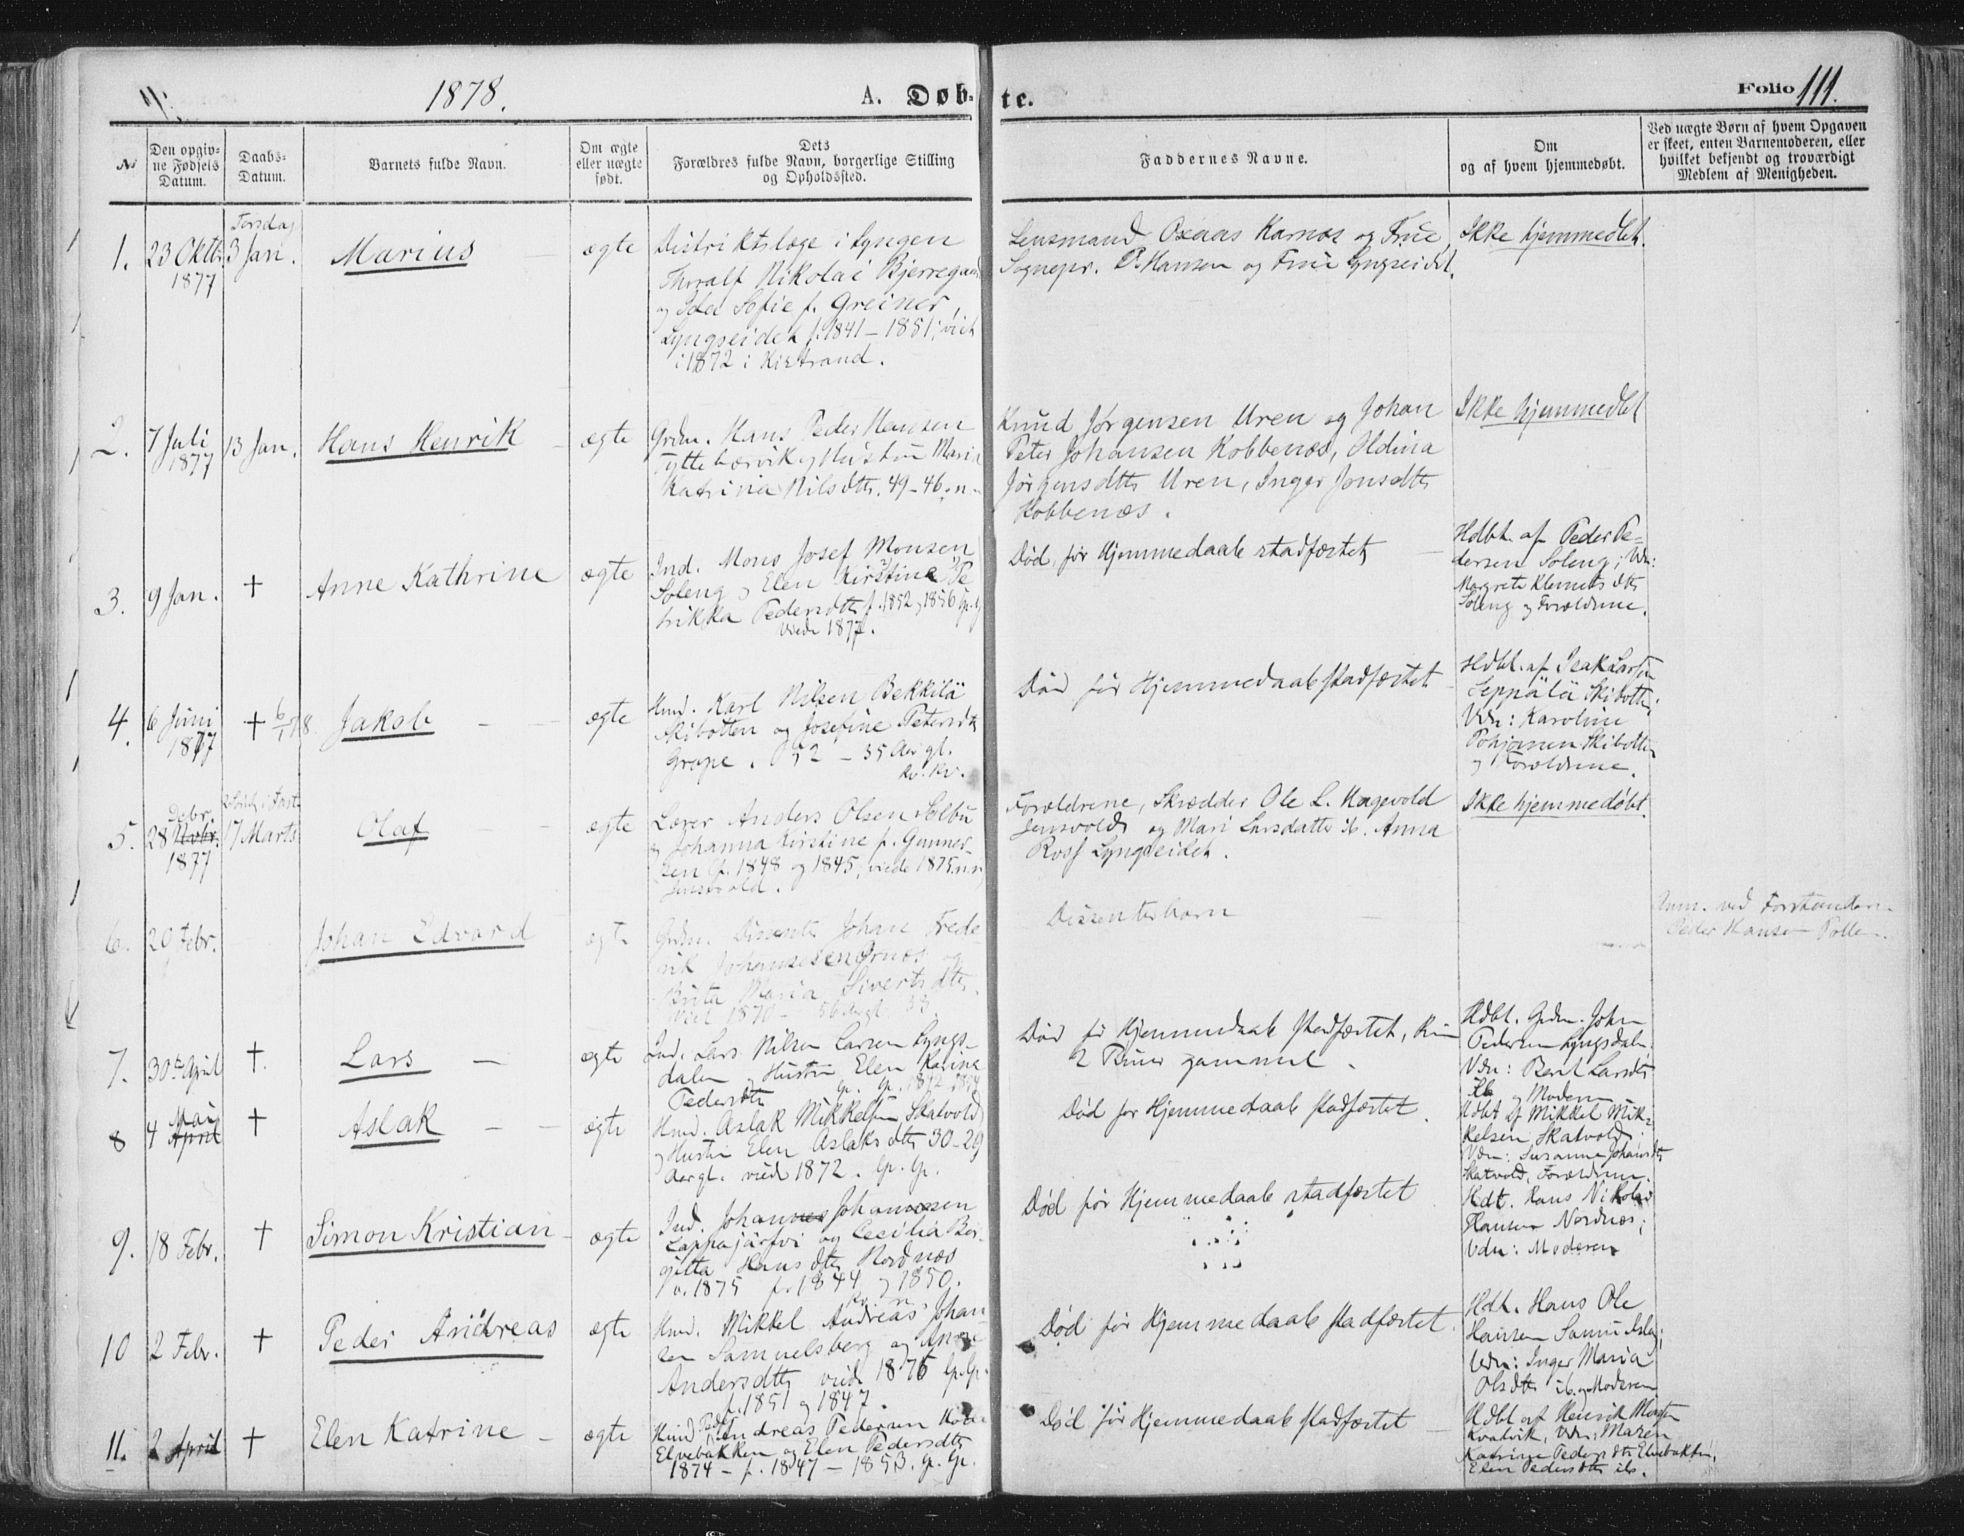 1878.
A. Døb-
te.
Folio 111.
No
Den opgiv-
ne Fødsels
Datum.
Daabs-
Datum.
Barnets fulde Navn.
Om ægte
eller uægte
født.
Dets
Forældres fulde Navn, borgerlige Stilling
og Opholdssted.
Faddernes Navne.
Om
og af hvem hjemmedøbt.
Ved uægte Børn af hvem Opgaven
er skeet, enten Barnemoderen, eller
hvilket bekjendt og troværdigt
Medlem af Menigheden.
1.
23 Oktbr
1877
Torsdag
3 Jan.
Marius
ægte
Distriktslæge i Lyngen
Thoralf Nikolai Bjerregaard
og Ida Sofie f. Greiner,
Lyngseidet f. 1841 - 1851; viet
i 1872 i Kistrand.
Lensmand Oxaas Karnæs og Frue
Sognepr. P. Hansen og Frue Lyngseidet.
Ikke hjemmedbt.
2.
7 Juli
1877
13 Jan.
Hans Henrik
ægte
Grdm. Hans Peder Hansen
Tyttebærvik og Hustru Maria
Katrina Nilsdtr. 49-46. n.
Knud Jørgensen Uren og Johan
Peter Johansen Kobbenæs, Oldina
Jørgensdtr Uren, Inger Jonsdtr
Kobbenæs.
Ikke hjemmedbt
3.
9 Jan.
+
Anne Kathrine
ægte
Ind. Mons Josef Monsen
Soleng og Elen Kirstine Pe
trikka Pedersdtr f. 1852 og 1856 lp. lp
viede 1877.
Død før Hjemmedaab stadfæstet
Hdbt. af Peder Pe-
dersen Soleng; Vdn:
Margrete Klemetsdtr
Soleng og Forældrene.
4.
6 Juni
1877
+ 6/1 78.
Jakob
ægte
Hmd. Karl Nilsen Bekkilä
Skibotten og Josefine Petersdtr
Grape. 52 - 35 Aar gl.
kv. kv.
Død før Hjemmedaab stadfæstet
Hdbt. af Isak Larsen
Seppälä Skibotten;
Vdn: Karoline
Pohjonen Skibotten
og Forældrene.
5.
28 Nobr.
Debr.
1877
17 Marts
Olaf
ægte
Lærer Anders Olsen Selbu
og Johanna Kirstine f. Gunner-
sen f. 1848 og 1845, viede 1875. n. n
Jensvold.
Forældrene, Skrædder Ole L. Hagevold
Jensvold og Mari Larsdatter ib. Anna
Rosf Lyngseidet.
Ikke hjemmedøbt.
6.
20 Febr.
Johan Edvard
ægte
Grdm. Dissenter Johan Frede-
rik Johannesen Ornæs og
Brita Maria Sivertsdtr.
viet 1870
Dissenterbarn
Anm. ved Forstanderen
Peder Hansen Pollen.
7.
30te April
+.
Lars
ægte
Ind. Lars Nilsen Larsen Lyngs-
dalen og Hustru Elen Karina
Pedersdtr
Død før Hjemmedaab stadfæstet, kun
2 Timer gammel.
Hdbt. Grdm. John
Pedersen Lyngsdalen.
Vdn: Berit Larsdtr
ib. og Moderen
8
4 April
Mai
+
Aslak
ægte
Hmd. Aslak Mikkelsen Skatvold
og Hustru Elen Aslaksdtr 30-29
Aar gl. viede 1872. lp. lp.
Død før Hjemmedaab stadfæstet.
Hdbt af Mikkel Mik-
kelsen Skatvold;
Vdn: Susanne Johansdtr
Skatvold, Forældrene.
9.
18 Febr.
+
Simon Kristian
ægte
Ind. Johannes Johannesen
Lappajärfvi og Cecilia Bir-
gitta Hansdtr Nordnæs
v. 1875 f. 1844 og 1850.
Død før Hjemmedaab stadfæstet
Hdt. Hans Nikolai
Hansen Nordnæs;
Vdn: Moderen
10
2 Febr.
+
Peder Andreas
ægte
Hmd. Mikkel Andreas Johan-
sen Samuelsberg og Anne
Andersdtr viede 1876 lp. lp.
f. 1851 og 1847.
Død før Hjemmedaab stadfæstet.
Hdt. Hans Ole
Hansen Samuelsbg;
Vdn: Inger Maria
Olsdtr ib. og Moderen
11.
2 April
+
Elen Katrine
ægte
Hmd Peder Andreas Pedersen
Elvebakken og Elen Pedersdtr
1874 - f. 1847 - 1853. lp. lp.
Død før Hjemmedaab stadfæstet
Hdbt af Henrik
Kvalvik, Vdn: Maren
Katrine Pedersdtr Elvebakken,
Elen Pedersdtr ib.